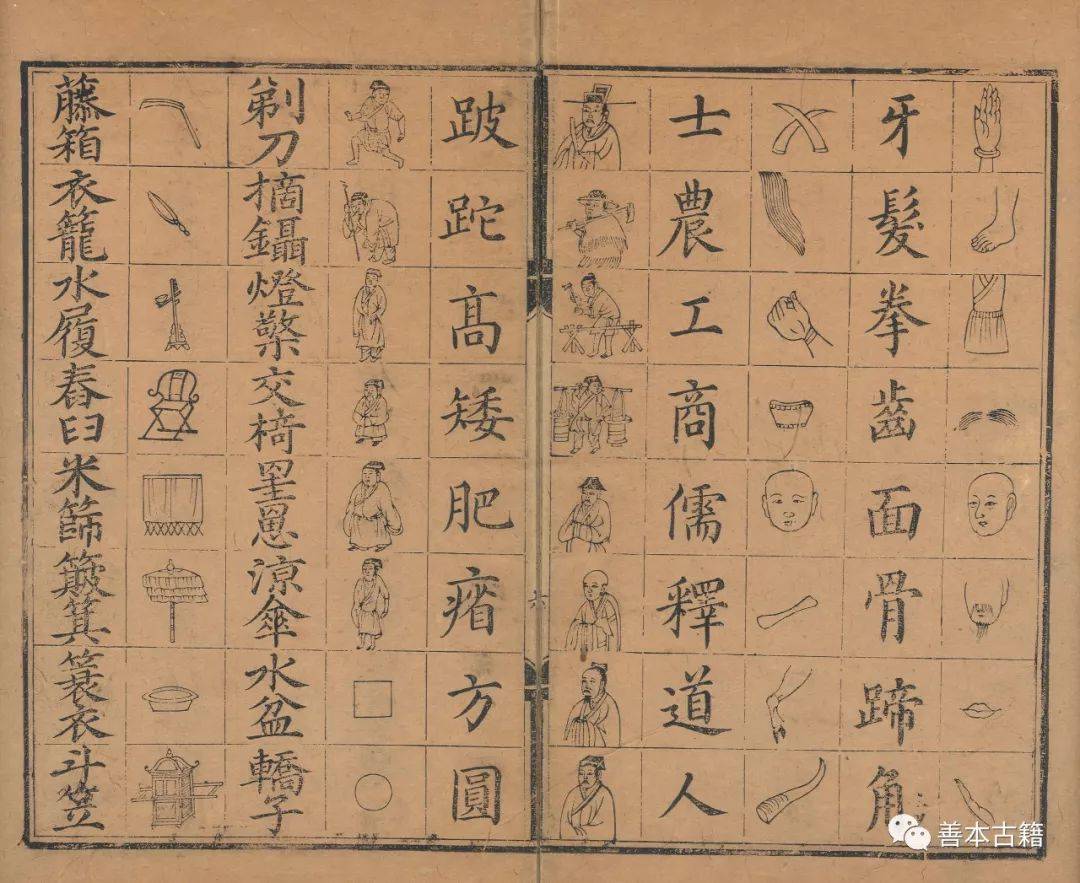 牙髮拳齒面骨蹄角
士農工商儒釋道人
六
跛跎髙矮肥瘠方圓
剃刀摘鑷燈檠交椅罣罳涼傘水盆轎子
藤箱衣籠水履舂臼米篩簸箕蓑衣斗笠
善本古籍